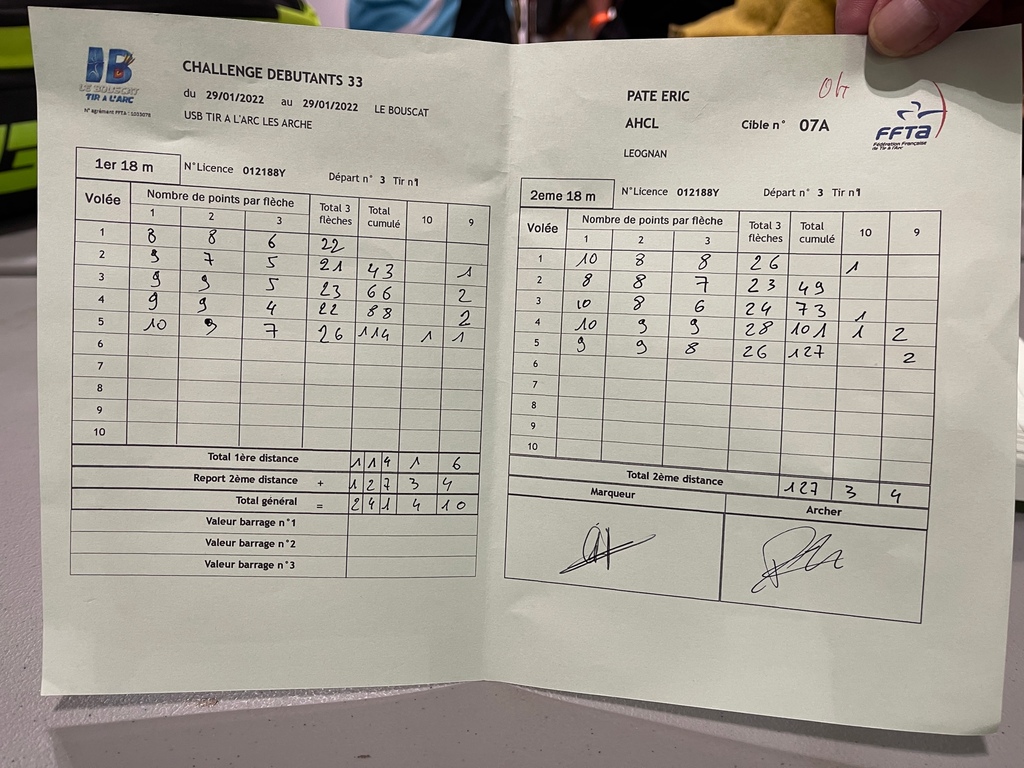 LE BOUSCAT
TIR A L'ARC
N° agrément FFTA : 1033078
CHALLENGE DEBUTANTS 33
du 29/01/2022 au 29/01/2022 LE BOUSCAT
USB TIR A L'ARC LES ARCHE
1er 18 m N°Licence 012188Y Départ n° 3 Tir n°1
Volée Nombre de points par flèche Total 3 flèches Total cumulé 10 9
1 2 3
1 8 8 6 22
2 9 7 5 21 43 1
3 9 9 5 23 66 2
4 9 9 4 22 88 2
5 10 9 7 26 114 1 1
6
7
8
9
10
Total 1ère distance 114 1 6
Report 2ème distance + 127 3 4
Total général = 241 4 10
Valeur barrage n°1
Valeur barrage n°2
Valeur barrage n°3
PATE ERIC
AHCL Cible n° 07A
LEOGNAN
FFTA
Fédération Française
de Tir à l'Arc
2eme 18 m N°Licence 012188Y Départ n° 3 Tir n°1
Volée Nombre de points par flèche Total 3 flèches Total cumulé 10 9
1 2 3
1 10 8 8 26 1
2 8 8 7 23 49
3 10 8 6 24 73 1
4 10 9 9 28 101 1 2
5 9 9 8 26 127 2
6
7
8
9
10
Total 2ème distance 127 3 4
Marqueur Archer